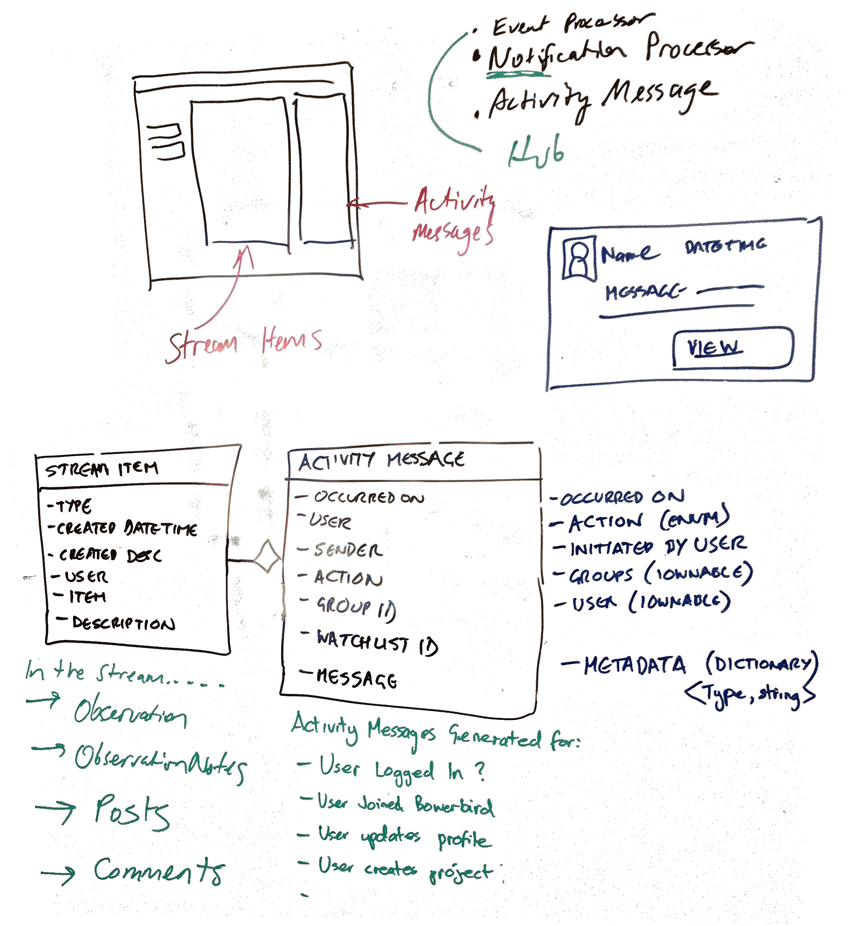 • Event Processor
• Notification Processor
• Activity Message
Hub
Activity
Messages
Stream Items
Name DATETIME
MESSAGE
VIEW
STREAM ITEM
-TYPE
-CREATED DATETIME
-CREATED DESC
-USER
-ITEM
-DESCRIPTION
ACTIVITY MESSAGE
-OCCURRED ON
-USER
-SENDER
-ACTION
-GROUP ID
-WATCHLIST ID
-MESSAGE
-OCCURRED ON
-ACTION (ENUM)
-INITIATED BY USER
-GROUPS (IOWNABLE)
-USER (IOWNABLE)
-METADATA (DICTIONARY)
<Type, string>
In the stream.....
→ Observation
→ ObservationNotes
→ Posts
→ Comments
Activity Messages Generated for:
- User Logged In ?
- User Joined Bowerbird
- User updates profile
- User creates project
-